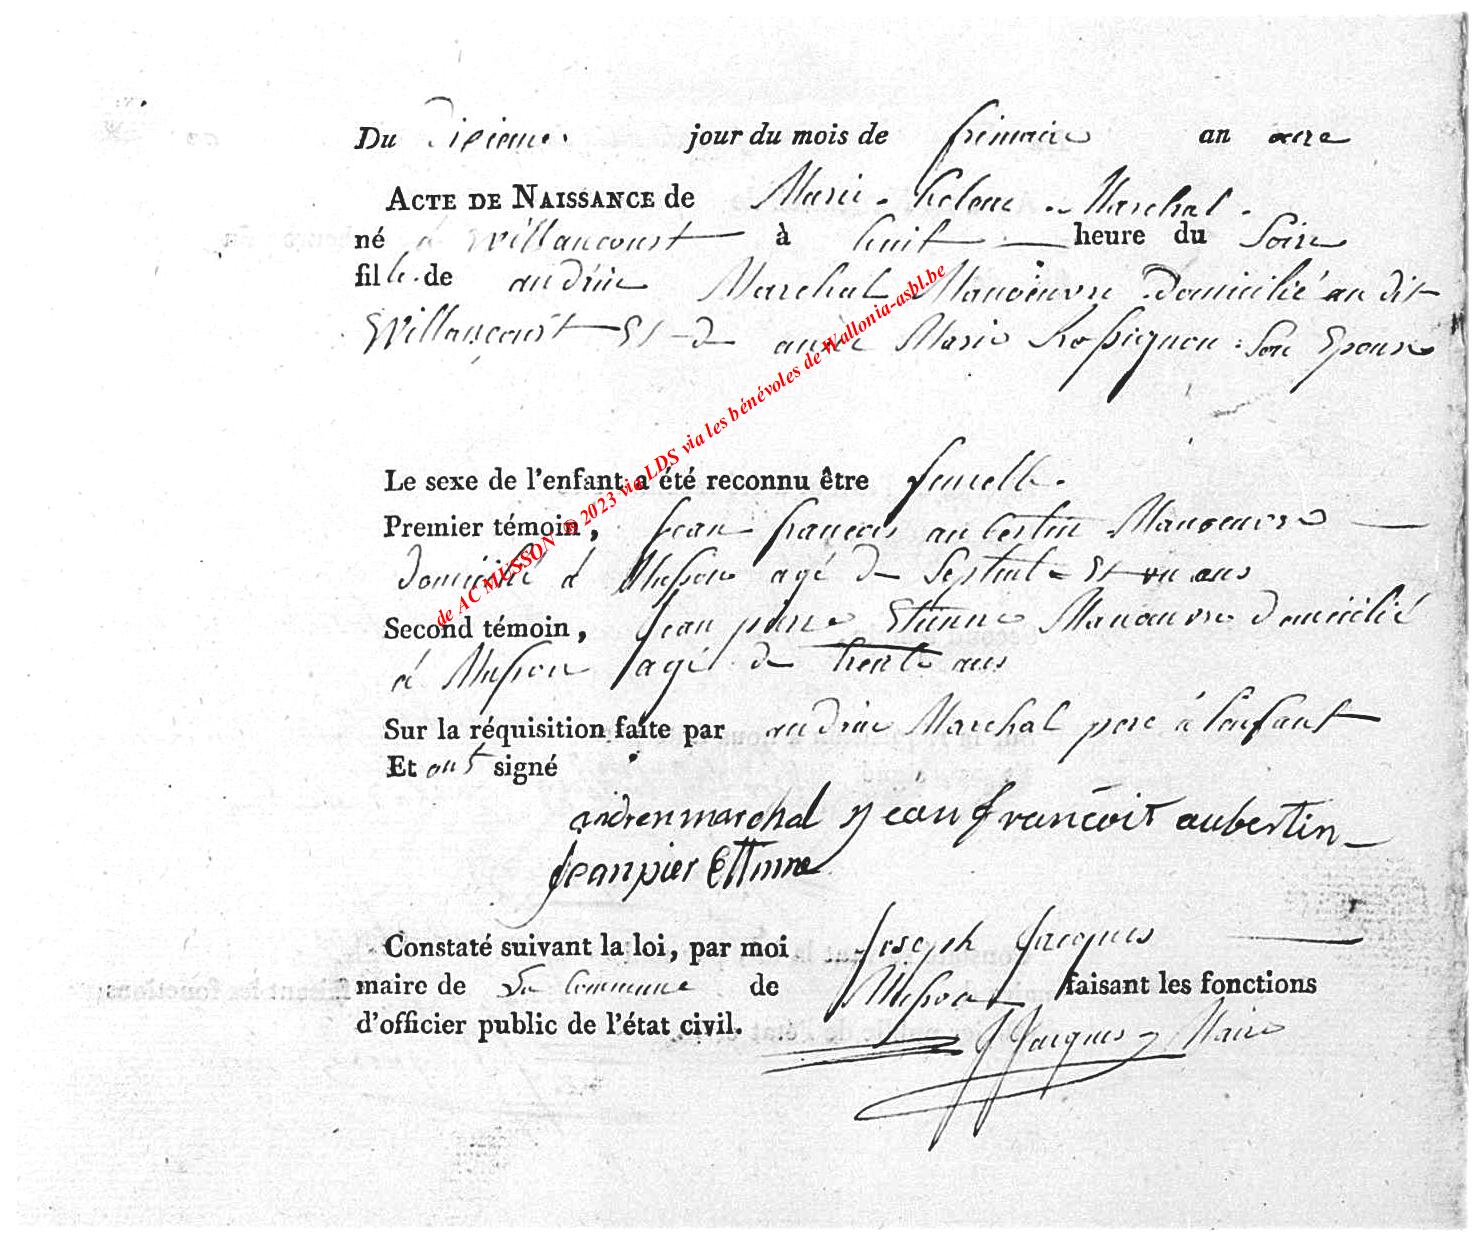 Du Dixieme jour du mois de frimaire an onze
ACTE DE NAISSANCE de Marie helene Marchal
né à Willancourt à huit heure du Soire
fille de andrien Marchal Manoeuvre Domicilié au dit
Willancourt Et de Marie Rossignon Son Epouse
Le sexe de l'enfant a été reconnu être femelle.
Premier témoin, Jean françois aubertin Manoeuvre
domicilié à Musson agé de Septente Et un ans
Second témoin, Jean piere Etienne Manouvre domicilié
à Musson agé de trente ans
Sur la réquisition faite par andrien Marchal pere à l'enfant
Et ont signé
andrenmarchal jean françoit aubertin
Jeanpier Ettinne
Constaté suivant la loi, par moi Joseph Jacques
maire de La Commune de Musson faisant les fonctions
d'officier public de l'état civil.
JJacques Maire
de AC MUSSON © 2023 via LDS via les bénévoles de Wallonia-asbl.be